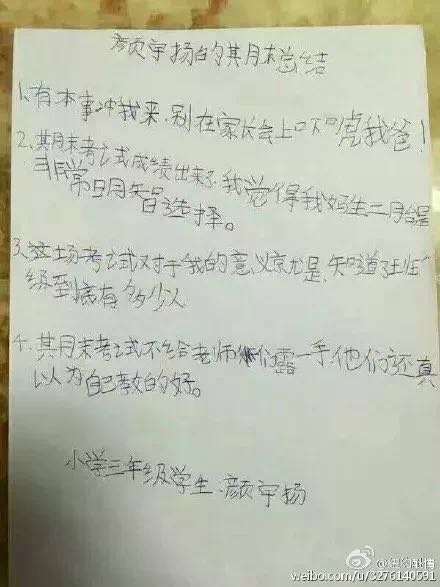 颜宇扬的期末总结
1.有本事冲我来,别在家长会上口下唬我爸!
2.期末考试成绩出来了,我觉得我妈生二胎是
非常明智日选择。
3.这场考试对于我的意义就是,知道了班
级到底有多少人
4.其月末考试不给老师们露一手,他们还真
以为自己教的好。
小学三年级学生.颜宇扬
weibo.com/u/3276140591